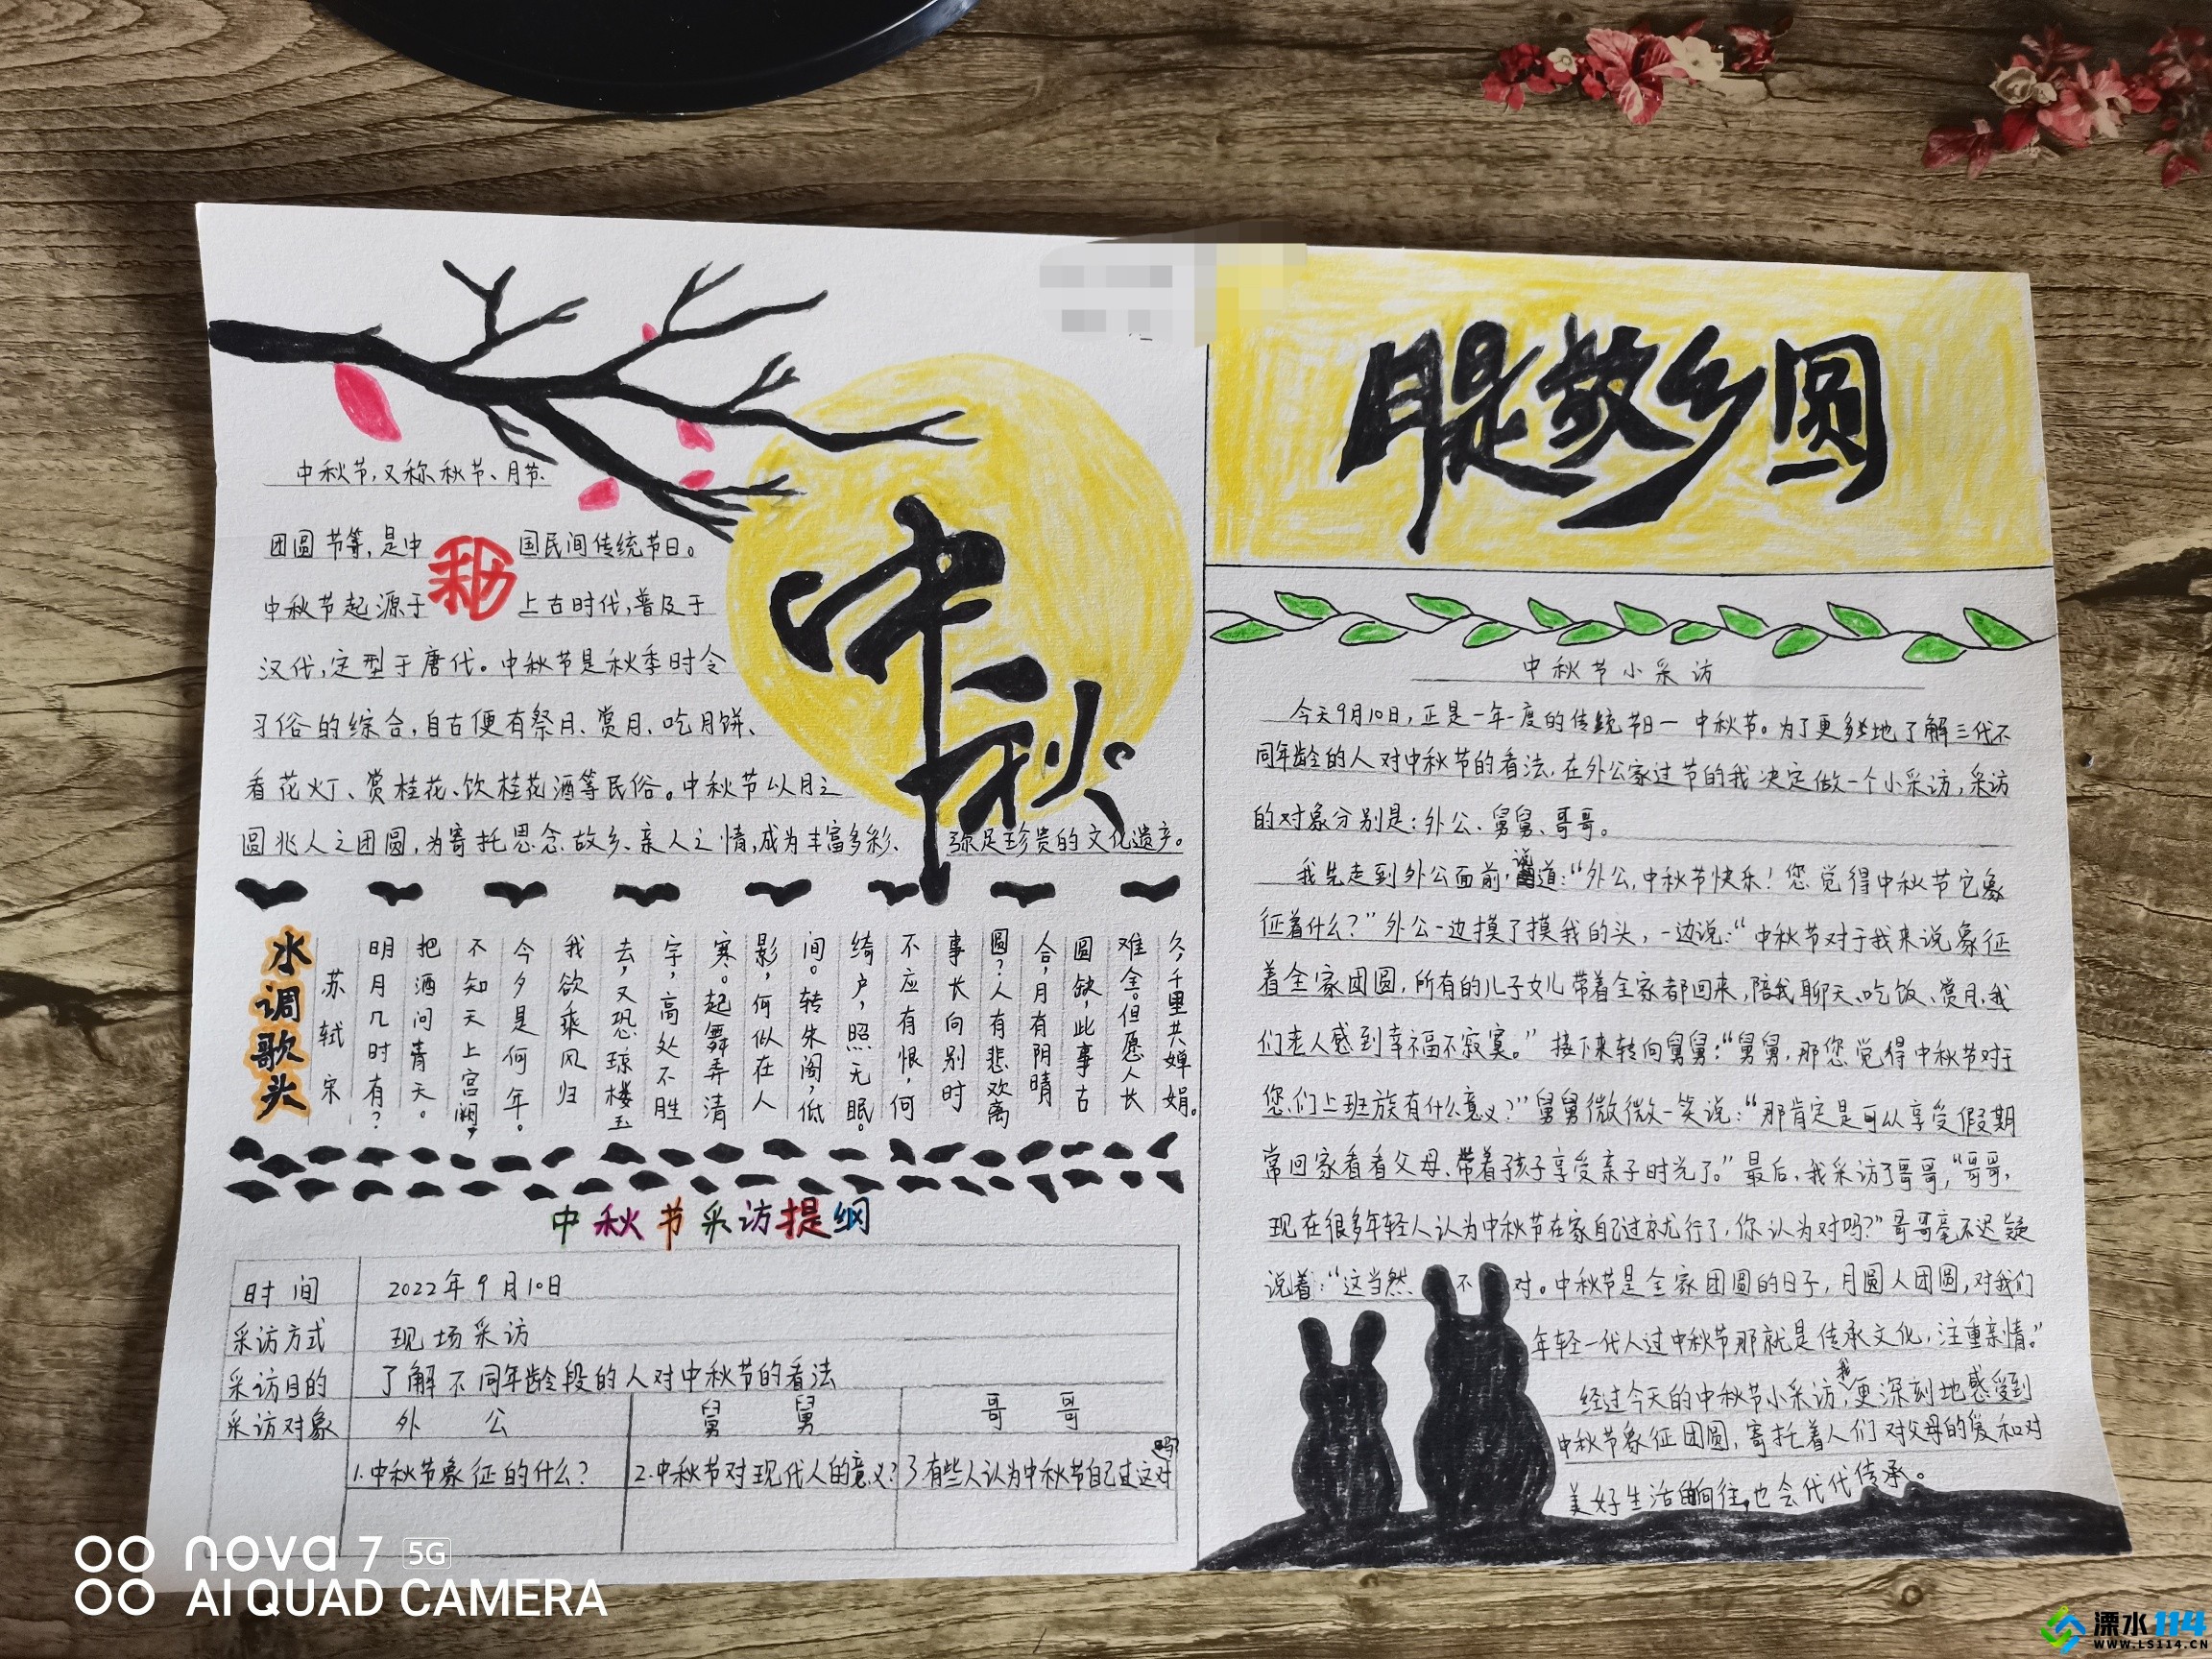 月是故乡圆
中秋
中秋节,又称秋节、月节、
团圆节等,是中国民间传统节日。
中秋节起源于上古时代,普及于
汉代,定型于唐代。中秋节是秋季时令
习俗的综合,自古便有祭月、赏月、吃月饼、
看花灯、赏桂花、饮桂花酒等民俗。中秋节以月之
圆兆人之团圆,为寄托思念故乡、亲人之情,成为丰富多彩、弥足珍贵的文化遗产。
水调歌头
苏轼 宋
明月几时有?
把酒问青天。
不知天上宫阙,
今夕是何年。
我欲乘风归
去,又恐琼楼玉
宇,高处不胜
寒。起舞弄清
影,何似在人
间。转朱阁,低
绮户,照无眠。
不应有恨,何
事长向别时
圆?人有悲欢离
合,月有阴晴
圆缺,此事古
难全。但愿人长
久,千里共婵娟。
中秋节采访提纲
时间 2022年9月10日
采访方式 现场采访
采访目的 了解不同年龄段的人对中秋节的看法
采访对象 外公 舅舅 哥哥
1.中秋节象征的什么? 2.中秋节对现代人的意义? 3有些人认为中秋节自己过这对吗?
中秋节小采访
今天9月10日,正是一年一度的传统节日一中秋节。为了更多地了解三代不
同年龄的人对中秋节的看法,在外公家过节的我决定做一个小采访,采访
的对象分别是:外公、舅舅、哥哥。
我先走到外公面前,说道:“外公,中秋节快乐!您觉得中秋节它象
征着什么?”外公一边摸了摸我的头,一边说:“中秋节对于我来说象征
着全家团圆,所有的儿子女儿带着全家都回来,陪我聊天、吃饭、赏月,我
们老人感到幸福不寂寞。”接下来转向舅舅:“舅舅,那您觉得中秋节对于
您们上班族有什么意义?”舅舅微微一笑说:“那肯定是可以享受假期
常回家看看父母、带着孩子享受亲子时光了。”最后,我采访了哥哥,“哥哥,
现在很多年轻人认为中秋节在家自己过就行了,你认为对吗?”哥哥毫不迟疑
说着:“这当然不对。中秋节是全家团圆的日子,月圆人团圆,对我们
年轻一代人过中秋节那就是传承文化,注重亲情。”
经过今天的中秋节小采访,我更深刻地感受到
中秋节象征团圆,寄托着人们对父母的爱和对
美好生活的向往,也会代代传承。
nova 7 5G
AI QUAD CAMERA
溧水114
WWW.LS114.CN